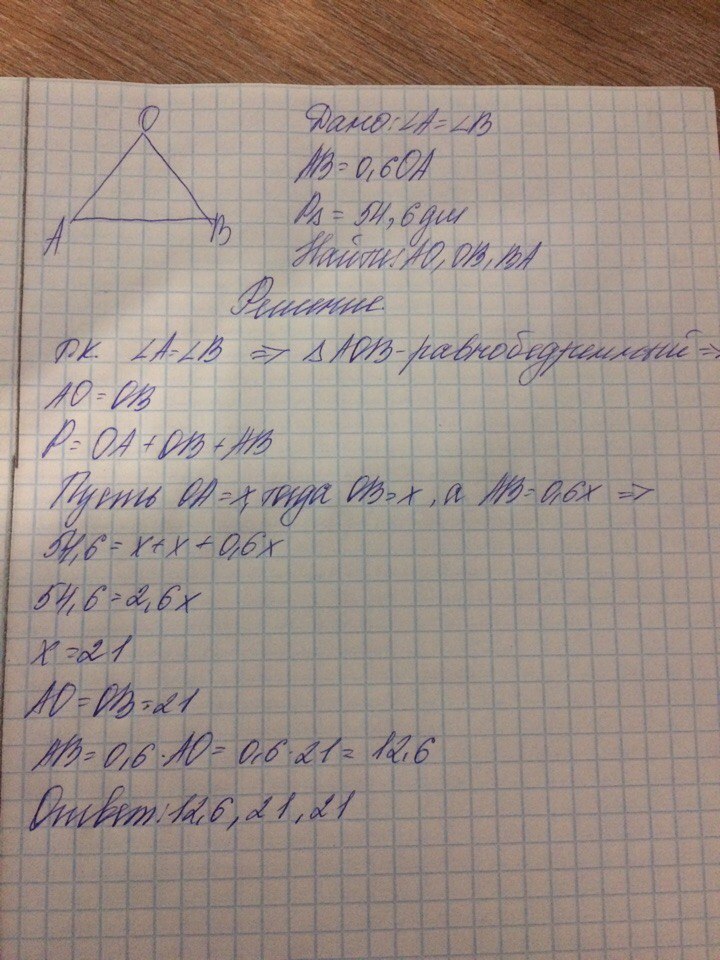 O
A
B
Дано: ∠A = ∠B
AB = 0,6 OA
P∆ = 54,6 дм
Найти: AO, OB, BA
Решение.
т.к. ∠A = ∠B => ∆ AOB - равнобедренный =>
AO = OB
P = OA + OB + AB
Пусть OA = x, тогда OB = x, а AB = 0,6x =>
54,6 = x + x + 0,6x
54,6 = 2,6x
x = 21
AO = OB = 21
AB = 0,6 · AO = 0,6 · 21 = 12,6
Ответ: 12,6, 21, 21